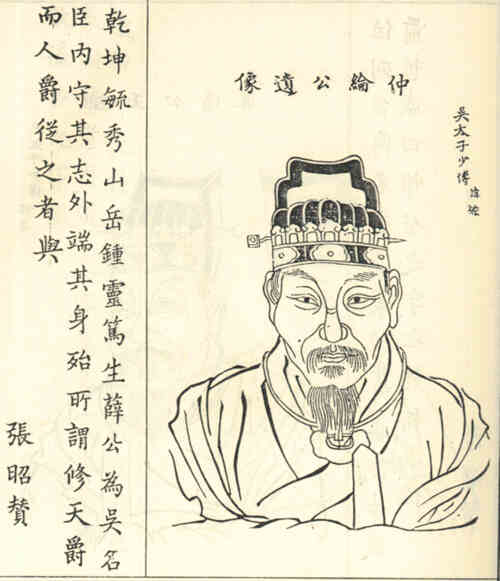 吳太子少傅 諱綜
仲綸公遺像
乾坤毓秀山岳鍾靈篤生薛公為吳名
臣內守其志外端其身殆所謂修天爵
而人爵從之者與
張昭贊